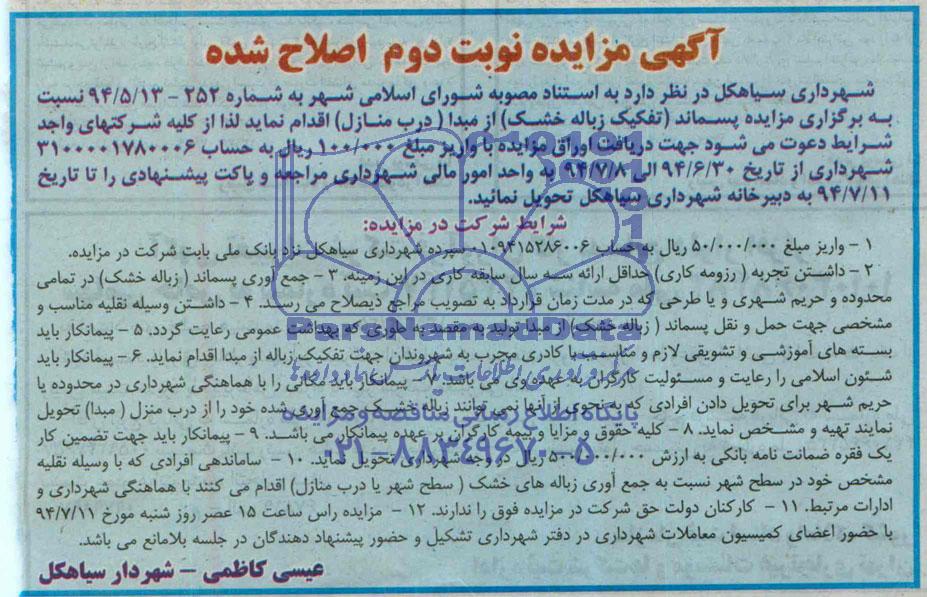 آگهی مزایده نوبت دوم اصلاح شده
شهرداری سیاهکل در نظر دارد به استناد مصوبه شورای اسلامی شهر به شماره ۲۵۲ - ۹۴/۵/۱۳ نسبت
به برگزاری مزایده پسماند (تفکیک زباله خشک) از مبدا ( درب منازل) اقدام نماید لذا از کلیه شرکتهای واجد
شرایط دعوت می شود جهت دریافت اوراق مزایده با واریز مبلغ ۱۰۰/۰۰۰ ریال به حساب ۳۱۰۰۰۰۱۷۸۰۰۰۶
شهرداری از تاریخ ۹۴/۶/۳۰ الی ۹۴/۷/۸ به واحد امور مالی شهرداری مراجعه و پاکت پیشنهادی را تا تاریخ
۹۴/۷/۱۱ به دبیرخانه شهرداری سیاهکل تحویل نمائید.
شرایط شرکت در مزایده:
۱ - واریز مبلغ ۵۰/۰۰۰/۰۰۰ ریال به حساب ۰۱۰۹۴۱۵۲۸۶۰۰۶ سپرده شهرداری سیاهکل نزد بانک ملی بابت شرکت در مزایده.
۲ - داشتن تجربه ( رزومه کاری) حداقل ارائه سه سال سابقه کاری در این زمینه. ۳ - جمع آوری پسماند ( زباله خشک) در تمامی
محدوده و حریم شهری و یا طرحی که در مدت زمان قرارداد به تصویب مراجع ذیصلاح می رسد. ۴ - داشتن وسیله نقلیه مناسب و
مشخصی جهت حمل و نقل پسماند ( زباله خشک) از مبدا تولید به مقصد به طوری که بهداشت عمومی رعایت گردد. ۵ - پیمانکار باید
بسته های آموزشی و تشویقی لازم و مناسب با کادری مجرب به شهروندان جهت تفکیک زباله از مبدا اقدام نماید. ۶ - پیمانکار باید
شئون اسلامی را رعایت و مسئولیت کارگران به عهده وی می باشد. ۷ - پیمانکار باید مکانی را با هماهنگی شهرداری در محدوده یا
حریم شهر برای تحویل دادن افرادی که به نحوی از آنها نمی توانند زباله خشک جمع آوری شده خود را از درب منزل ( مبدا) تحویل
نمایند تهیه و مشخص نماید. ۸ - کلیه حقوق و مزایا و بیمه کارگران بر عهده پیمانکار می باشد. ۹ - پیمانکار باید جهت تضمین کار
یک فقره ضمانت نامه بانکی به ارزش ۵۰۰/۰۰۰/۰۰۰ ریال در وجه شهرداری تحویل نماید. ۱۰ - ساماندهی افرادی که با وسیله نقلیه
مشخص خود در سطح شهر نسبت به جمع آوری زباله های خشک ( سطح شهر یا درب منازل) اقدام می کنند با هماهنگی شهرداری و
ادارات مرتبط. ۱۱ - کارکنان دولت حق شرکت در مزایده فوق را ندارند. ۱۲ - مزایده راس ساعت ۱۵ عصر روز شنبه مورخ ۹۴/۷/۱۱
با حضور اعضای کمیسیون معاملات شهرداری در دفتر شهرداری تشکیل و حضور پیشنهاد دهندگان در جلسه بلامانع می باشد.
عیسی کاظمی - شهردار سیاهکل
ParsNamadData
پایگاه اطلاع رسانی مناقصه و مزایده
۰۲۱-۸۸۳۴۹۶۷۰-۵